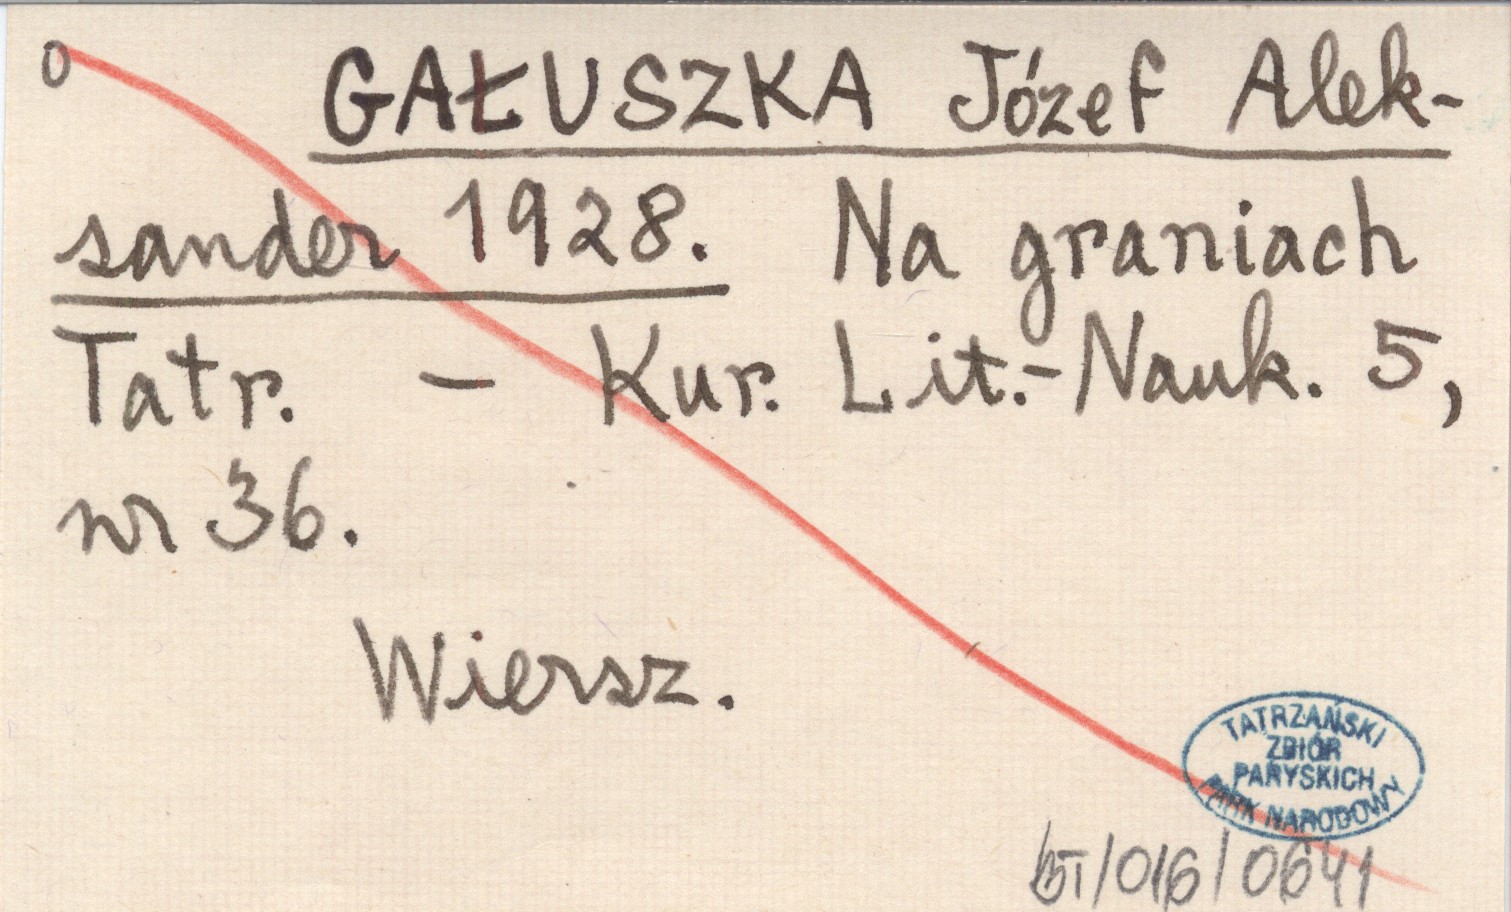 0 GAŁUSZKA Józef Alek-
sander 1928. Na graniach
Tatr. - Kur. Lit.-Nauk. 5,
nr 36.
Wiersz.
TATRZAŃSKI
ZBIÓR
PARYSKICH
PARK NARODOWY
BT/016/0641